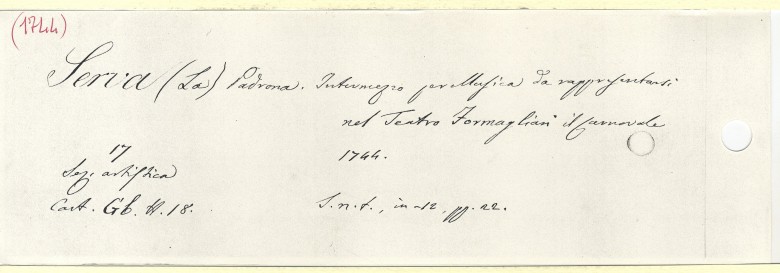 (1744)
Serva (La) Padrona. Intermezzo per Musica da rappresentarsi
nel Teatro Formagliari il Carnovale
1744.
17
Sez. artistica
Cart. Gb. H. 18.
S. n. t., in-12, pp. 22.